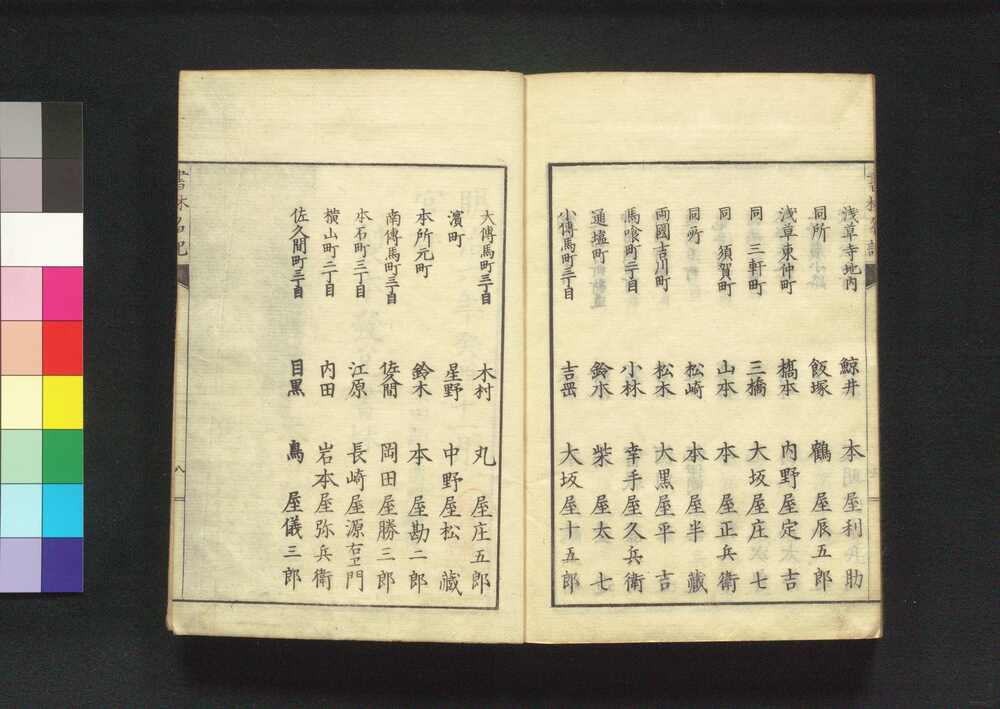 浅草寺地内 鯨井 本屋利兵助
同所 飯塚 鶴屋辰五郎
浅草東仲町 橋本 内野屋定吉
同 三軒町 三橋 大坂屋庄七
同 須賀町 山本 本屋正兵衛
同所 松崎 本屋半藏
両國吉川町 松木 大黒屋平吉
馬喰町二丁目 小林 幸手屋久兵衛
通塩町 鈴木 柴屋太七
小傳馬町三丁目 吉田 大坂屋十五郎
大傳馬町三丁目 木村 丸屋庄五郎
濱町 星野 中野屋松藏
本所元町 鈴木 本屋勘二郎
南傳馬町三丁目 佐久間 岡田屋勝三郎
本石町三丁目 江原 長崎屋源右エ門
横山町二丁目 内田 岩本屋弥兵衛
佐久間町三丁目 目黒 鳥屋儀三郎
書林名記
八